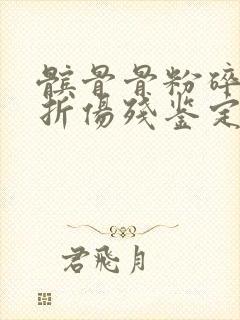 髌骨骨粉碎
折伤残鉴定
君飛月